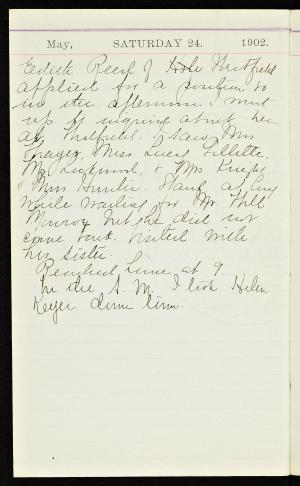 May, SATURDAY 24. 1902.
Edith Reed of Westfield
applied for a position &
in the afternoon I went
up & inquired about her
at Westfield. I saw Mrs.
Miss Lucy Gillette,
Mr. & Mrs
& Miss Hunter. Staid a long
while waiting for Mr. Will
Monroe but he did not
come but visited with
his sister.
Reached home at 9.
In the A. M. I took Helen
Keyes down town.